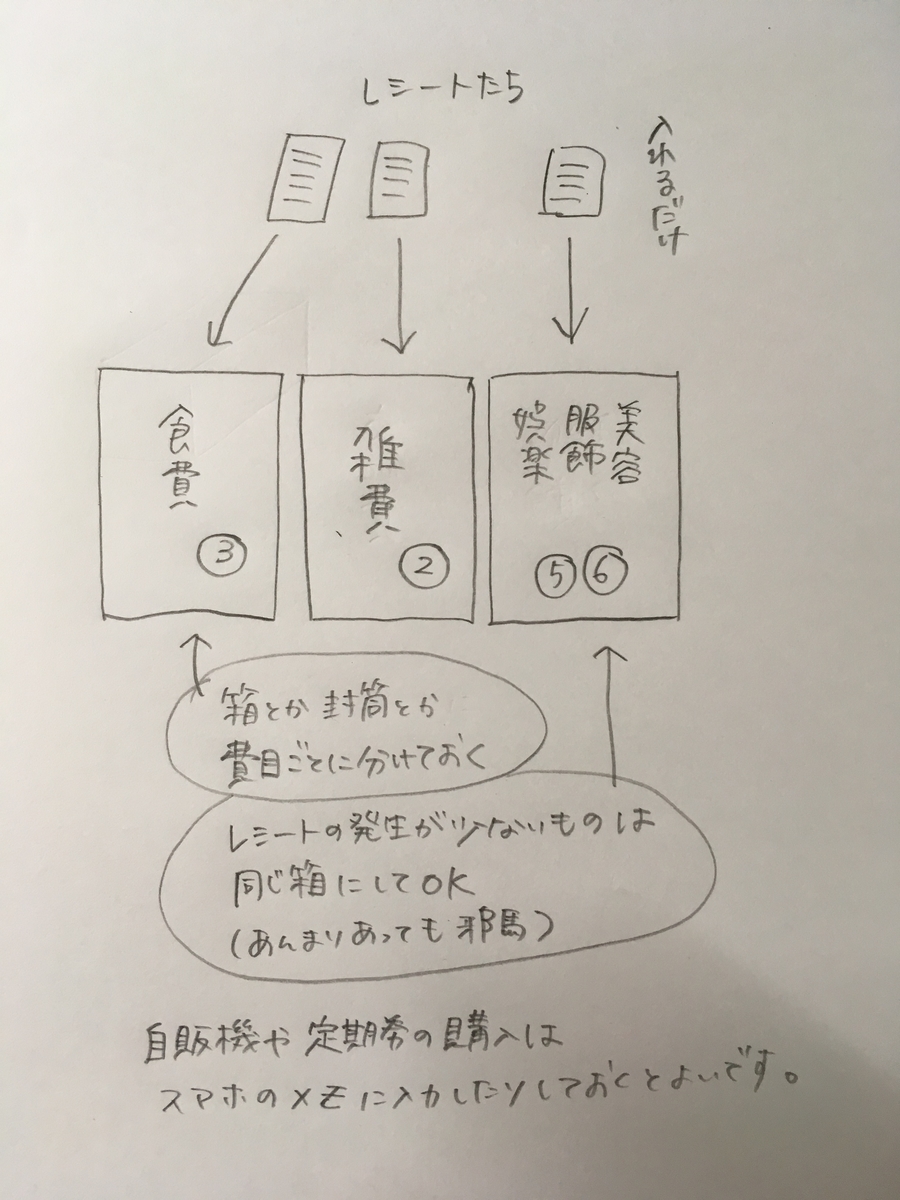 レシートたち
入れるだけ
食費
③
雑費
②
美容
服飾
娯楽
⑤⑥
箱とか封筒とか
費目ごとに分けておく
レシートの発生が少ないものは
同じ箱にしてOK
(あんまりあっても邪馬)
自販機や定期券の購入は
スマホのメモに入力したりしておくとよいです。